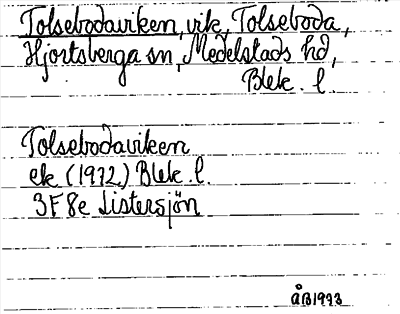 Tolsebodaviken, vik, Tolseboda,
Hjortsberga sn, Medelstads hd,
Blek. l.
Tolsebodaviken
ek (1972) Blek l.
3F 8e Listersjön
ÅB1993